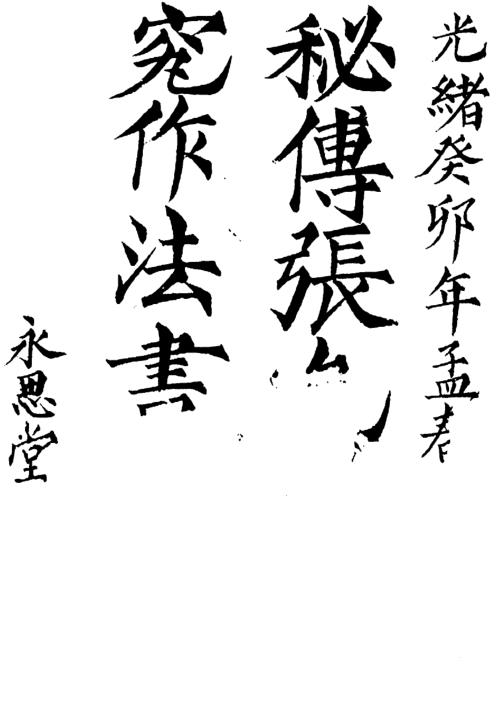 光緒癸卯年孟春
秘傳張
窕作法書
永思堂